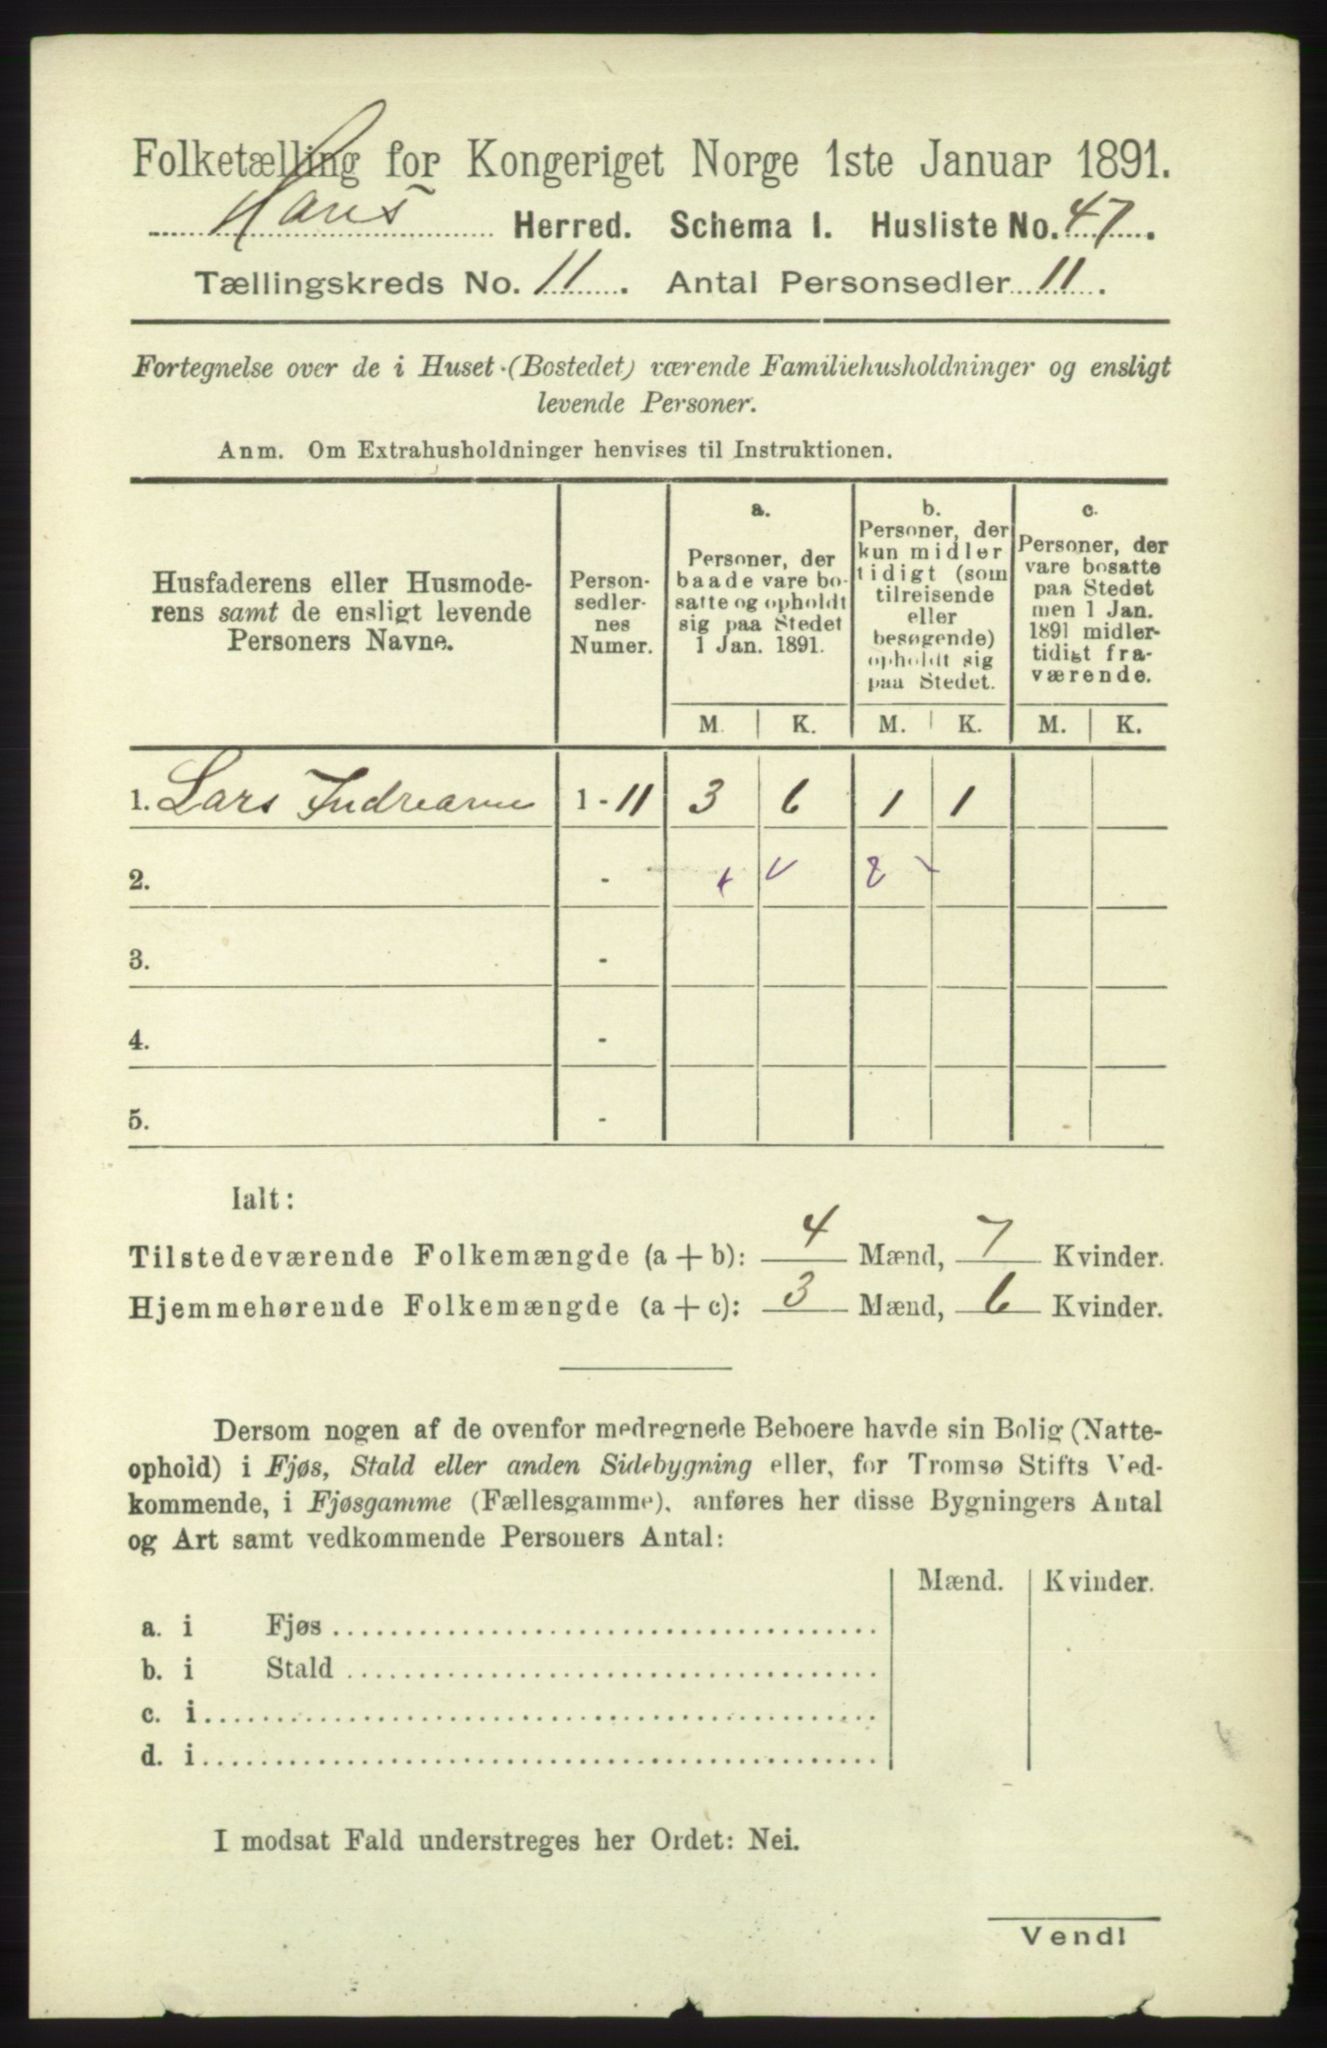 Folketælling for Kongeriget Norge 1ste Januar 1891.
Haus Herred. Schema I. Husliste No. 47.
Tællingskreds No. 11. Antal Personsedler 11.
Fortegnelse over de i Huset (Bostedet) værende Familiehusholdninger og ensligt
levende Personer.
Anm. Om Extrahusholdninger henvises til Instruktionen.
Husfaderens eller Husmode-
rens samt de ensligt levende
Personers Navne.
Person-
sedler-
nes
Numer.
a.
Personer, der
baade vare bo-
satte og opholdt
sig paa Stedet
1 Jan. 1891.
b.
Personer, der
kun midler
tidigt (som
tilreisende
eller
besøgende)
opholdt sig
paa Stedet.
c.
Personer, der
vare bosatte
paa Stedet
men 1 Jan.
1891 midler-
tidigt fra-
værende.
M. K. M. K. M. K.
1. Lars Indrearne 1-11 3 6 1 1
2. -
3. -
4. -
5. -
Ialt:
Tilstedeværende Folkemængde (a+b): 4 Mænd, 7 Kvinder.
Hjemmehørende Folkemængde (a+c): 3 Mænd, 6 Kvinder.
Dersom nogen af de ovenfor medregnede Beboere havde sin Bolig (Natte-
ophold) i Fjøs, Stald eller anden Sidebygning eller, for Tromsø Stifts Ved-
kommende, i Fjøsgamme (Fællesgamme), anføres her disse Bygningers Antal
og Art samt vedkommende Personers Antal:
Mænd. Kvinder.
a. i Fjøs
b. i Stald
c. i
d. i
I modsat Fald understreges her Ordet: Nei.
Vendl